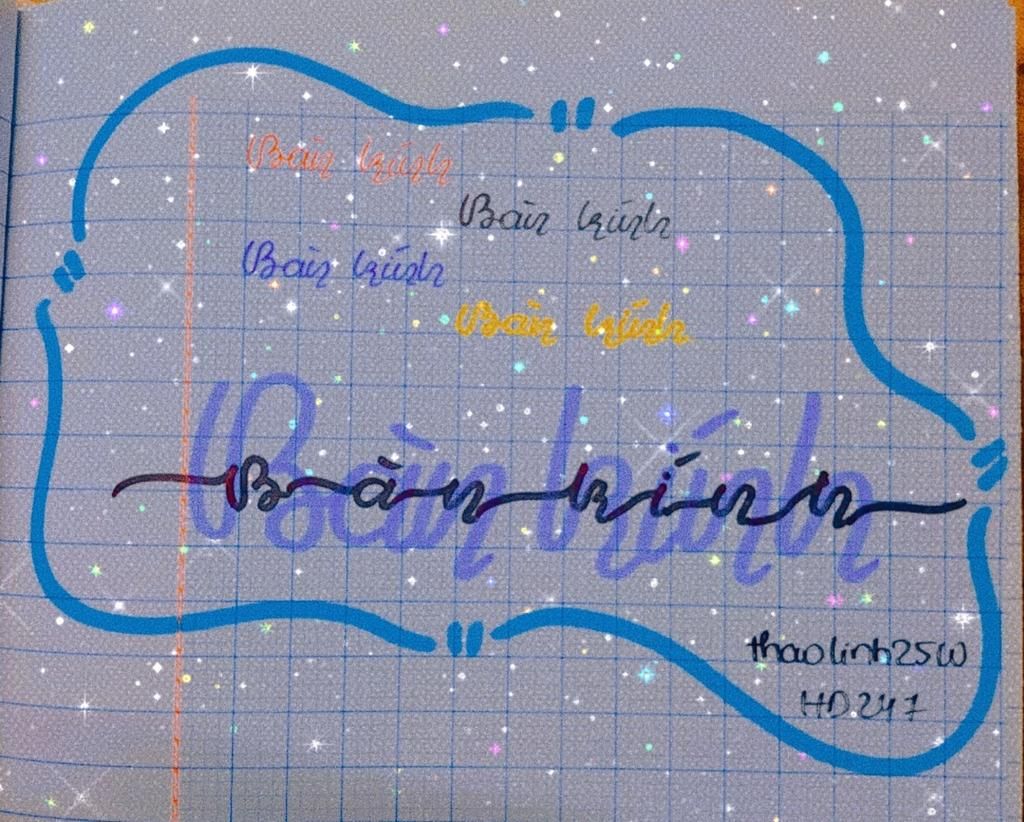 Bàn kính
Bàn kính
Bàn kính
Bàn kính
Bàn kính
Bàn kính
thaolinh25w
HD247